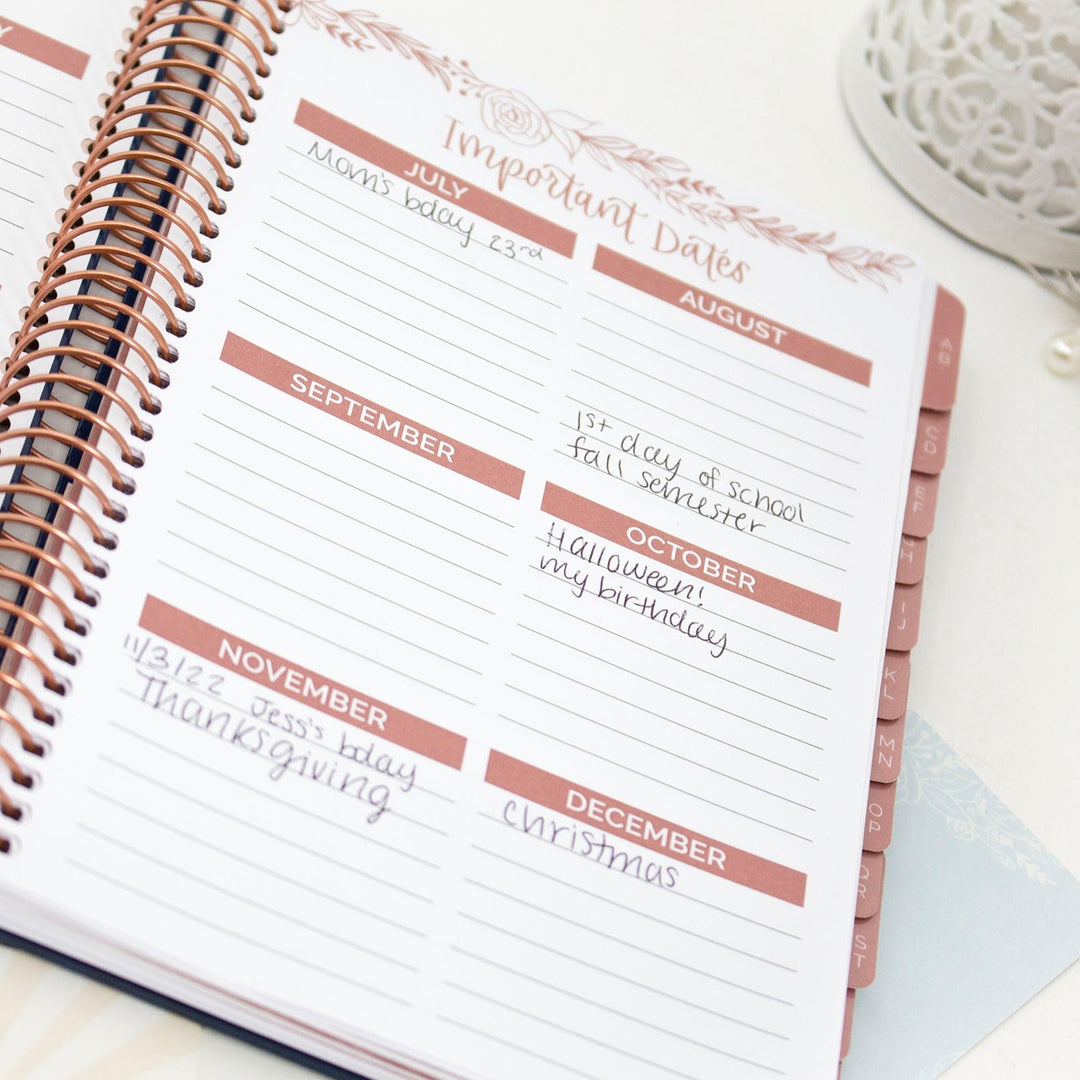 Important Dates
JULY
Mom's bday 23rd
AUGUST
1st day of school
fall semester
SEPTEMBER
OCTOBER
Halloween!
my birthday
NOVEMBER
11/3/22 Jess's bday
Thanksgiving
DECEMBER
christmas
AB
CD
EF
H
IJ
KL
MN
OP
QR
ST